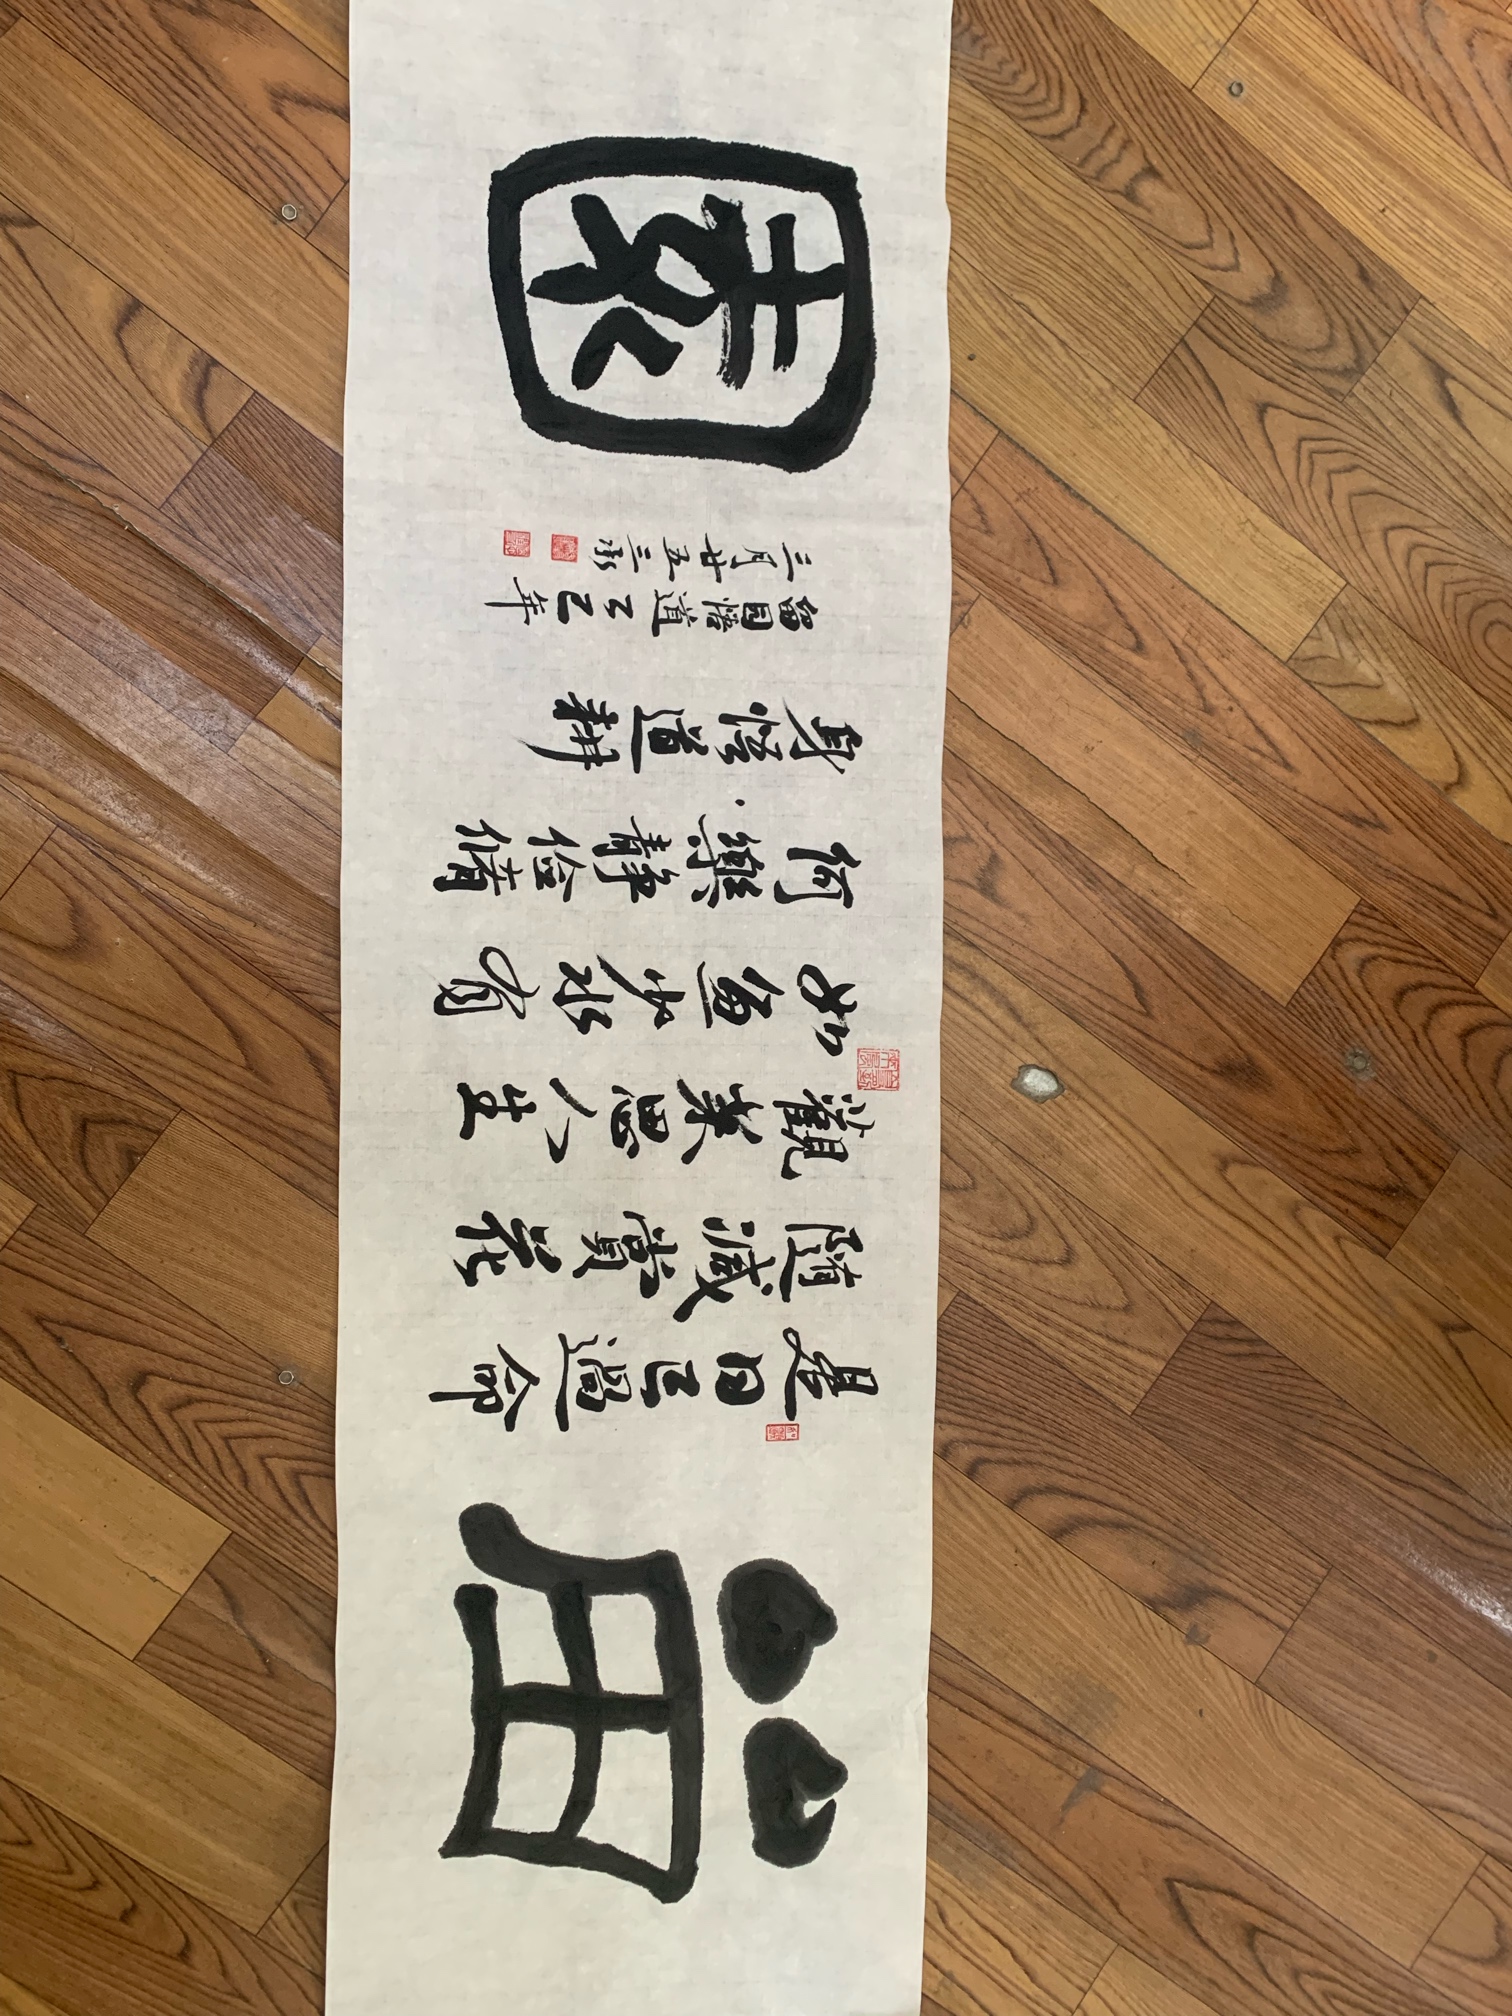 留
是日已過命
随減賞花
觀葉思人生
如魚少水有
何樂靜儉脩
身悟道耕
留園悟道乙巳年
三月廿五三
園